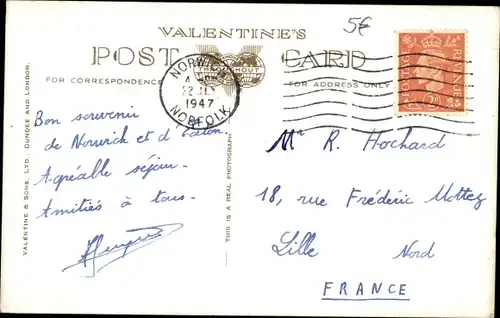 5€
VALENTINE'S
POST CARD
FOR CORRESPONDENCE
FOR ADDRESS ONLY
NORWICH
22 JLY
1947
NORFOLK
POSTAGE REVENUE
2D
Bon souvenir
de Norwick et d'Eaton.
Agréable séjour.
Amitiés à tous.
Mr R. Hochard
18, rue Frédéric Mottez
Lille Nord
FRANCE
VALENTINE & SONS, LTD. DUNDEE AND LONDON.
THIS IS A REAL PHOTOGRAPH